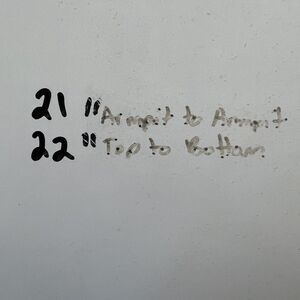 21" Armpit to Armpit
22" Top to Bottom